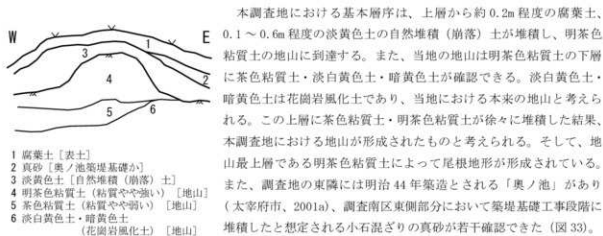 W
E
1
2
3
4
5
6
1 腐葉土［表土］
2 真砂［奥ノ池築堤基礎か］
3 淡黄色土［自然堆積（崩落）土］
4 明茶色粘質土（粘質やや強い）［地山］
5 茶色粘質土（粘質やや弱い）［地山］
6 淡白黄色土・暗黄色土
（花崗岩風化土）［地山］
本調査地における基本層序は、上層から約 0.2m 程度の腐葉土、
0.1 ～ 0.6m 程度の淡黄色土の自然堆積（崩落）土が堆積し、明茶色
粘質土の地山に到達する。また、当地の地山は明茶色粘質土の下層
に茶色粘質土・淡白黄色土・暗黄色土が確認できる。淡白黄色土・
暗黄色土は花崗岩風化土であり、当地における本来の地山と考えら
れる。この上層に茶色粘質土・明茶色粘質土が徐々に堆積した結果、
本調査地における地山が形成されたものと考えられる。そして、地
山最上層である明茶色粘質土によって尾根地形が形成されている。
また、調査地の東隣には明治 44 年築造とされる「奥ノ池」があり
（太宰府市、2001a）、調査南区東側部分において築堤基礎工事段階に
堆積したと想定される小石混ざりの真砂が若干確認できた（図 33）。